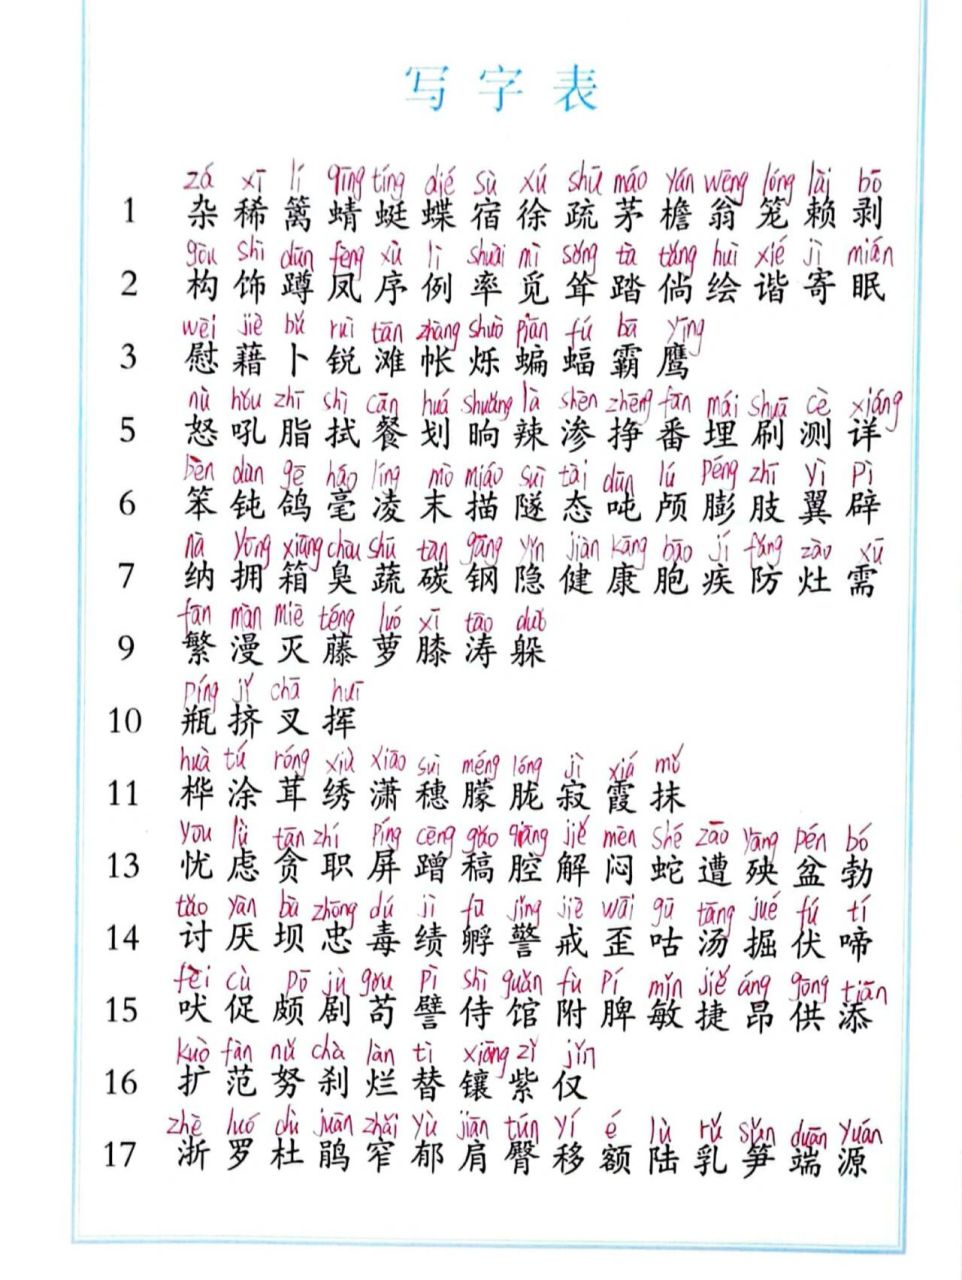 写字表
zá xī lí qīng tíng dié sù xú shū máo yán wēng lóng lài bō
1 杂 稀 篱 蜻 蜓 蝶 宿 徐 疏 茅 檐 翁 笼 赖 剥
gòu shì dūn fèng xù lì shuài mì sǒng tà tǎng huì xié jì mián
2 构 饰 蹲 凤 序 例 率 觅 耸 踏 倘 绘 谐 寄 眠
wèi jiè bǔ ruì tān zhàng shuò piān fú bà yīng
3 慰 藉 卜 锐 滩 帐 烁 蝙 蝠 霸 鹰
nù hǒu zhī shì cān huá shǎng là shèn zhēng fān mái shuā cè xiáng
5 怒 吼 脂 拭 餐 划 晌 辣 渗 挣 番 埋 刷 测 详
bèn dùn gē háo líng mò miáo suì tài dūn lú péng zhī yì pì
6 笨 钝 鸽 毫 凌 末 描 隧 态 吨 颅 膨 肢 翼 辟
nà yōng xiāng chòu shū tàn gāng yǐn jiàn kāng bāo jí fáng zào xū
7 纳 拥 箱 臭 蔬 碳 钢 隐 健 康 胞 疾 防 灶 需
fán màn miè téng luó xī tāo duǒ
9 繁 漫 灭 藤 萝 膝 涛 躲
píng jǐ chā huī
10 瓶 挤 叉 挥
huà tú róng xiù xiāo suì méng lóng jì xiá mǒ
11 桦 涂 茸 绣 潇 穗 朦 胧 寂 霞 抹
yōu lǜ tān zhí píng cèng gǎo qiāng jiě mèn shé zāo yāng pén bó
13 忧 虑 贪 职 屏 蹭 稿 腔 解 闷 蛇 遭 殃 盆 勃
tǎo yàn bà zhōng dú jì fū jǐng jiè wāi gū tāng jué fú tí
14 讨 厌 坝 忠 毒 绩 孵 警 戒 歪 咕 汤 掘 伏 啼
fèi cù pō jù gǒu pì shì guǎn fù pí mǐn jié áng gōng tiān
15 吠 促 颇 剧 苟 譬 侍 馆 附 脾 敏 捷 昂 供 添
kuò fàn nǔ chà làn tì xiāng zǐ jǐn
16 扩 范 努 刹 烂 替 镶 紫 仅
zhè luó dù juān zhǎi yù jiān tún yí é lù rǔ sǔn duān yuán
17 浙 罗 杜 鹃 窄 郁 肩 臀 移 额 陆 乳 笋 端 源